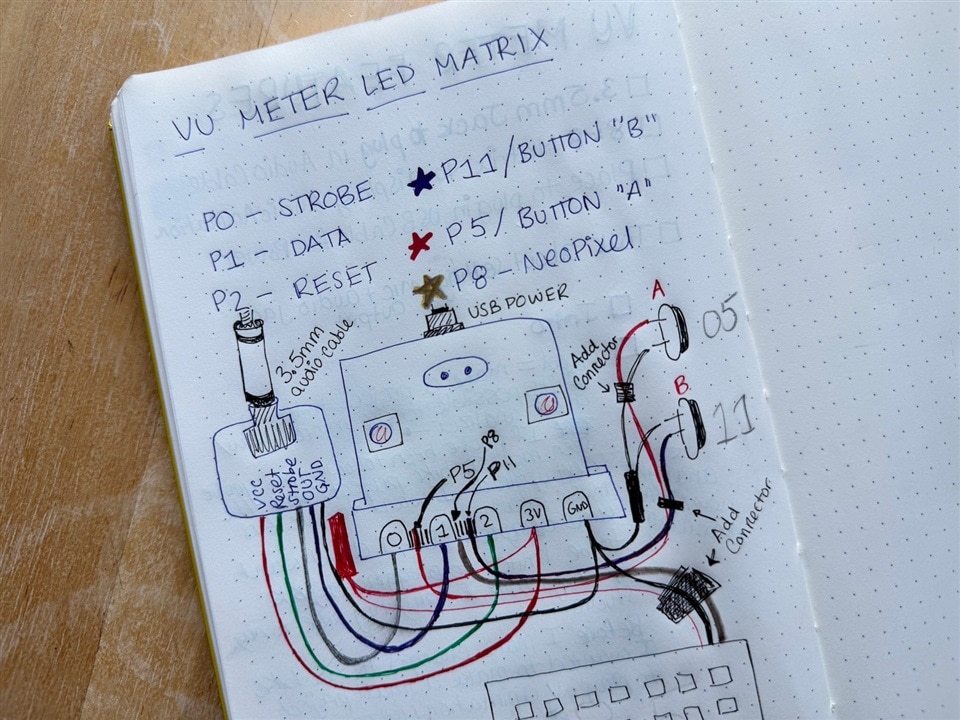 VU METER LED MATRIX
P0 - STROBE
P11/BUTTON "B"
P1 - DATA
P5/BUTTON "A"
P2 - RESET
P8 - NeoPixel
USB POWER
3.5mm
audio cable
A
05
Add
Connector
B
11
P8
P5
P11
VCC
Reset
Strobe
OUT
GND
0
1
2
3V
GND
Add
Connector